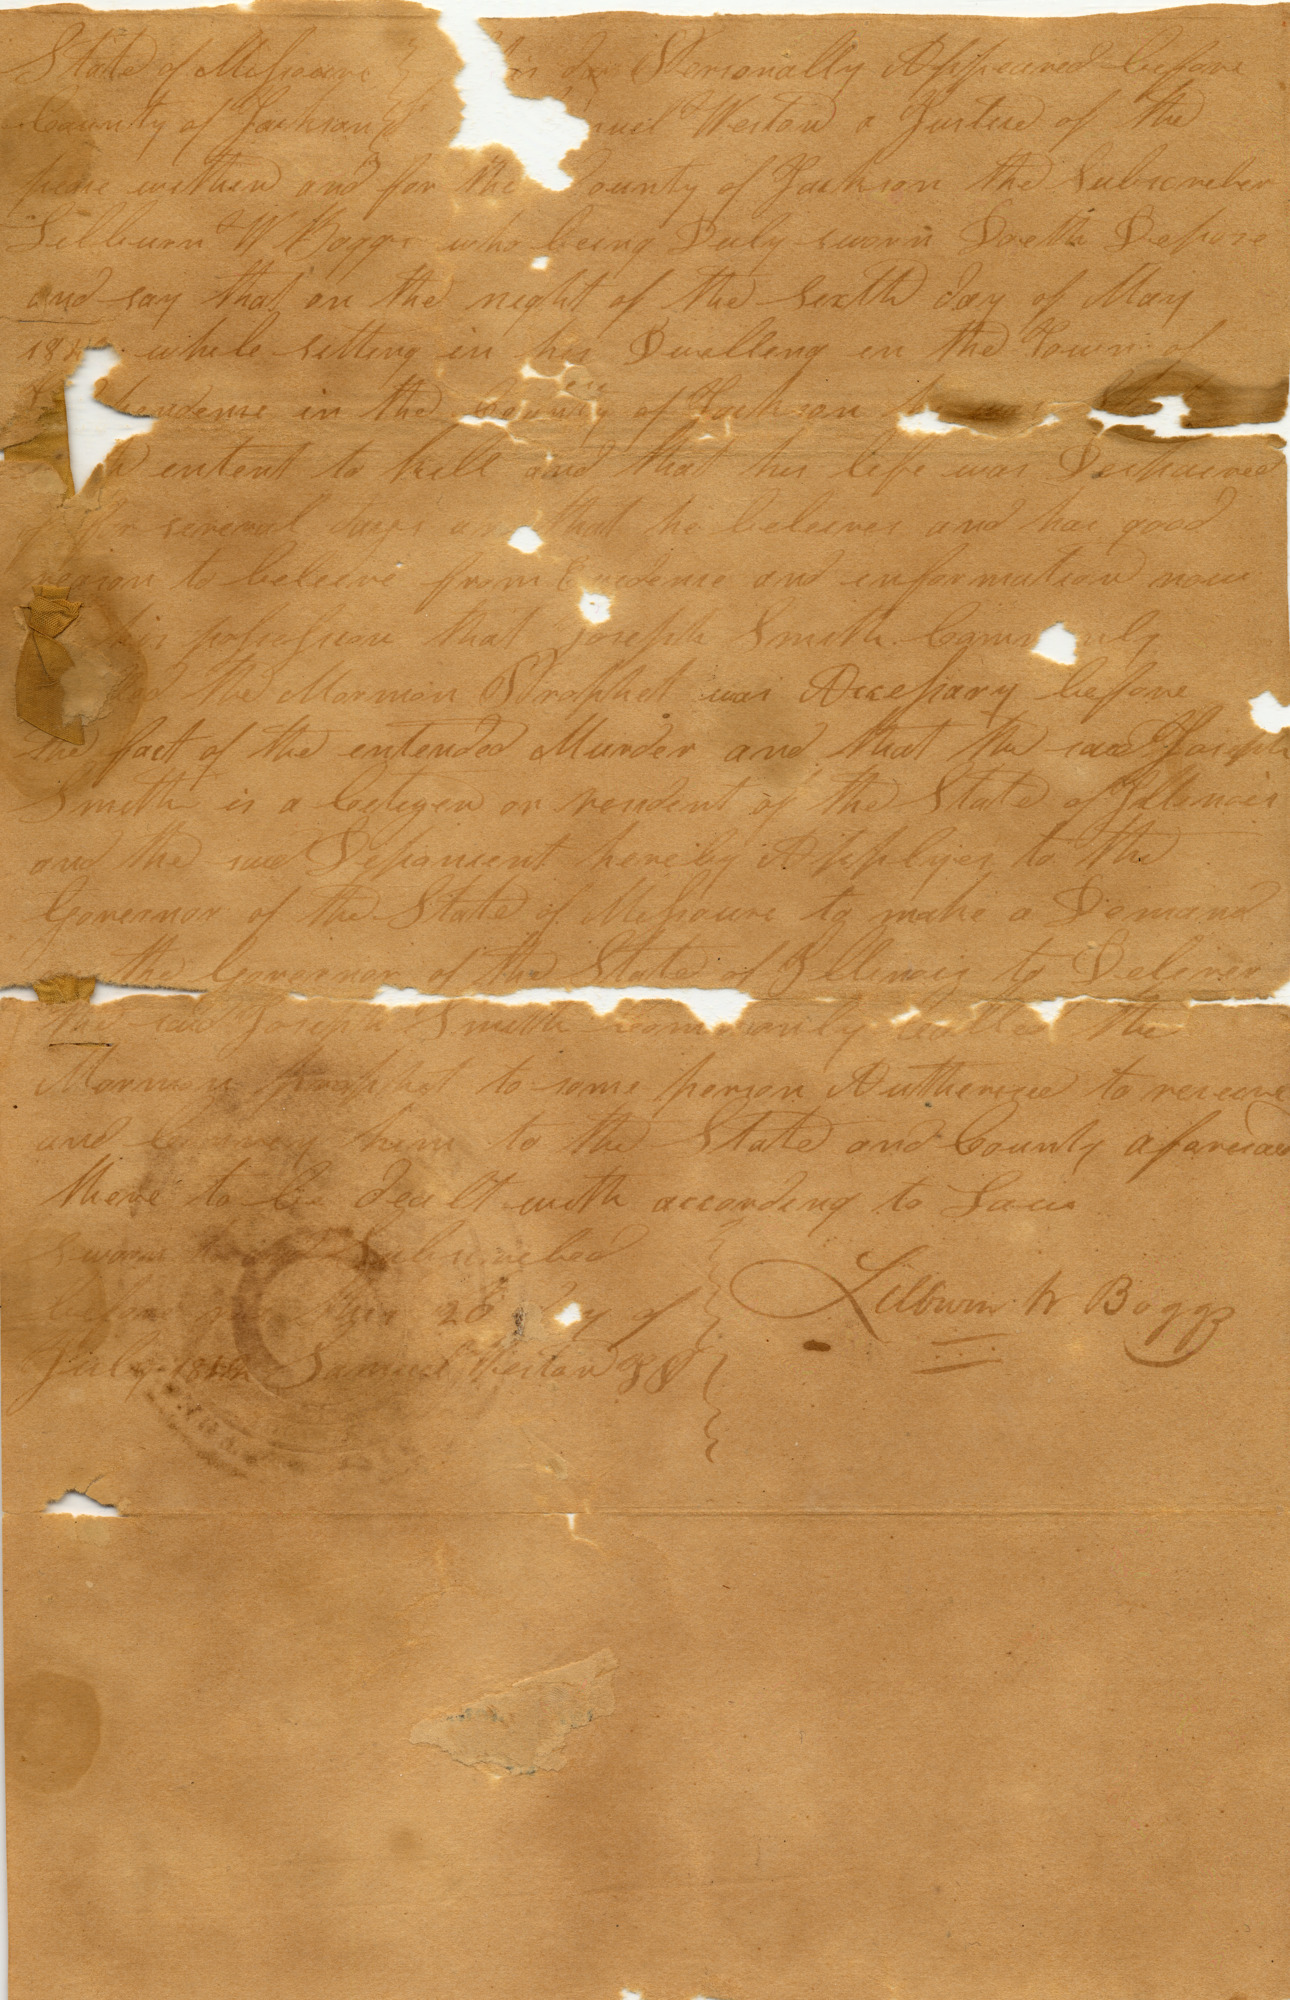 State of Missouri } this day Personally Appeared before
County of Jackson } Samuel Weston a Justice of the
peace within and for the County of Jackson the Subscriber
Lilburn W Boggs who being Duly sworn Doeth Depose
and say that on the night of the sixth day of May
1842 while sitting in his Dwelling in the Town of
Independence in the County of Jackson he was
with entent to kill and that his life was Despaired
of for several days and that he beleives and has good
reason to beleive from Evidence and information now
his possession that Joseph Smith Commonly
called the Mormon Prophet was Accessary before
the fact of the entended Murder and that the said Joseph
Smith is a Cetizen or resident of the State of Illinois
and the said Deponent hereby Applyes to the
Governor of the State of Missouri to make a Demand
the Governor of the State of Illinois to Deliver
the said Joseph Smith commonly called the
Mormon prophet to some person Authorised to receive
and Convey him to the State and County aforesaid
there to be dealt with according to Law
sworn to and Subscribed
before me this 20 day of } Lilburn W Boggs
July 1842 Samuel Weston JP }